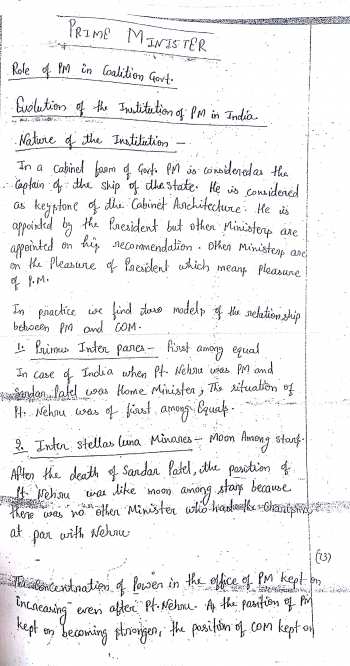 PRIME MINISTER
Role of PM in Coalition Govt.
Evolution of the Institution of PM in India
Nature of the Institution -
In a Cabinet form of Govt. PM is considered as the
Captain of the ship of the state. He is considered
as keystone of the Cabinet Architecture. He is
appointed by the President but other Ministers are
appointed on his recommendation. Other Ministers are
on the Pleasure of President which means Pleasure
of P.M.
In practice we find two models of the relationship
between PM and COM.
1. Primus Inter pares - First among equal
In case of India when Pt. Nehru was PM and
Sardar Patel was Home Minister, The situation of
Pt. Nehru was of first among Equals.
2. Inter stellas luna Minares - Moon Among stars.
After the death of Sardar Patel, the position of
Pt. Nehru was like moon among stars because
there was no other Minister who has the
at par with Nehru
(13)
The Concentration of Power in the office of PM kept on
increasing even after Pt. Nehru. As the position of PM
kept on becoming stronger, the position of COM kept on